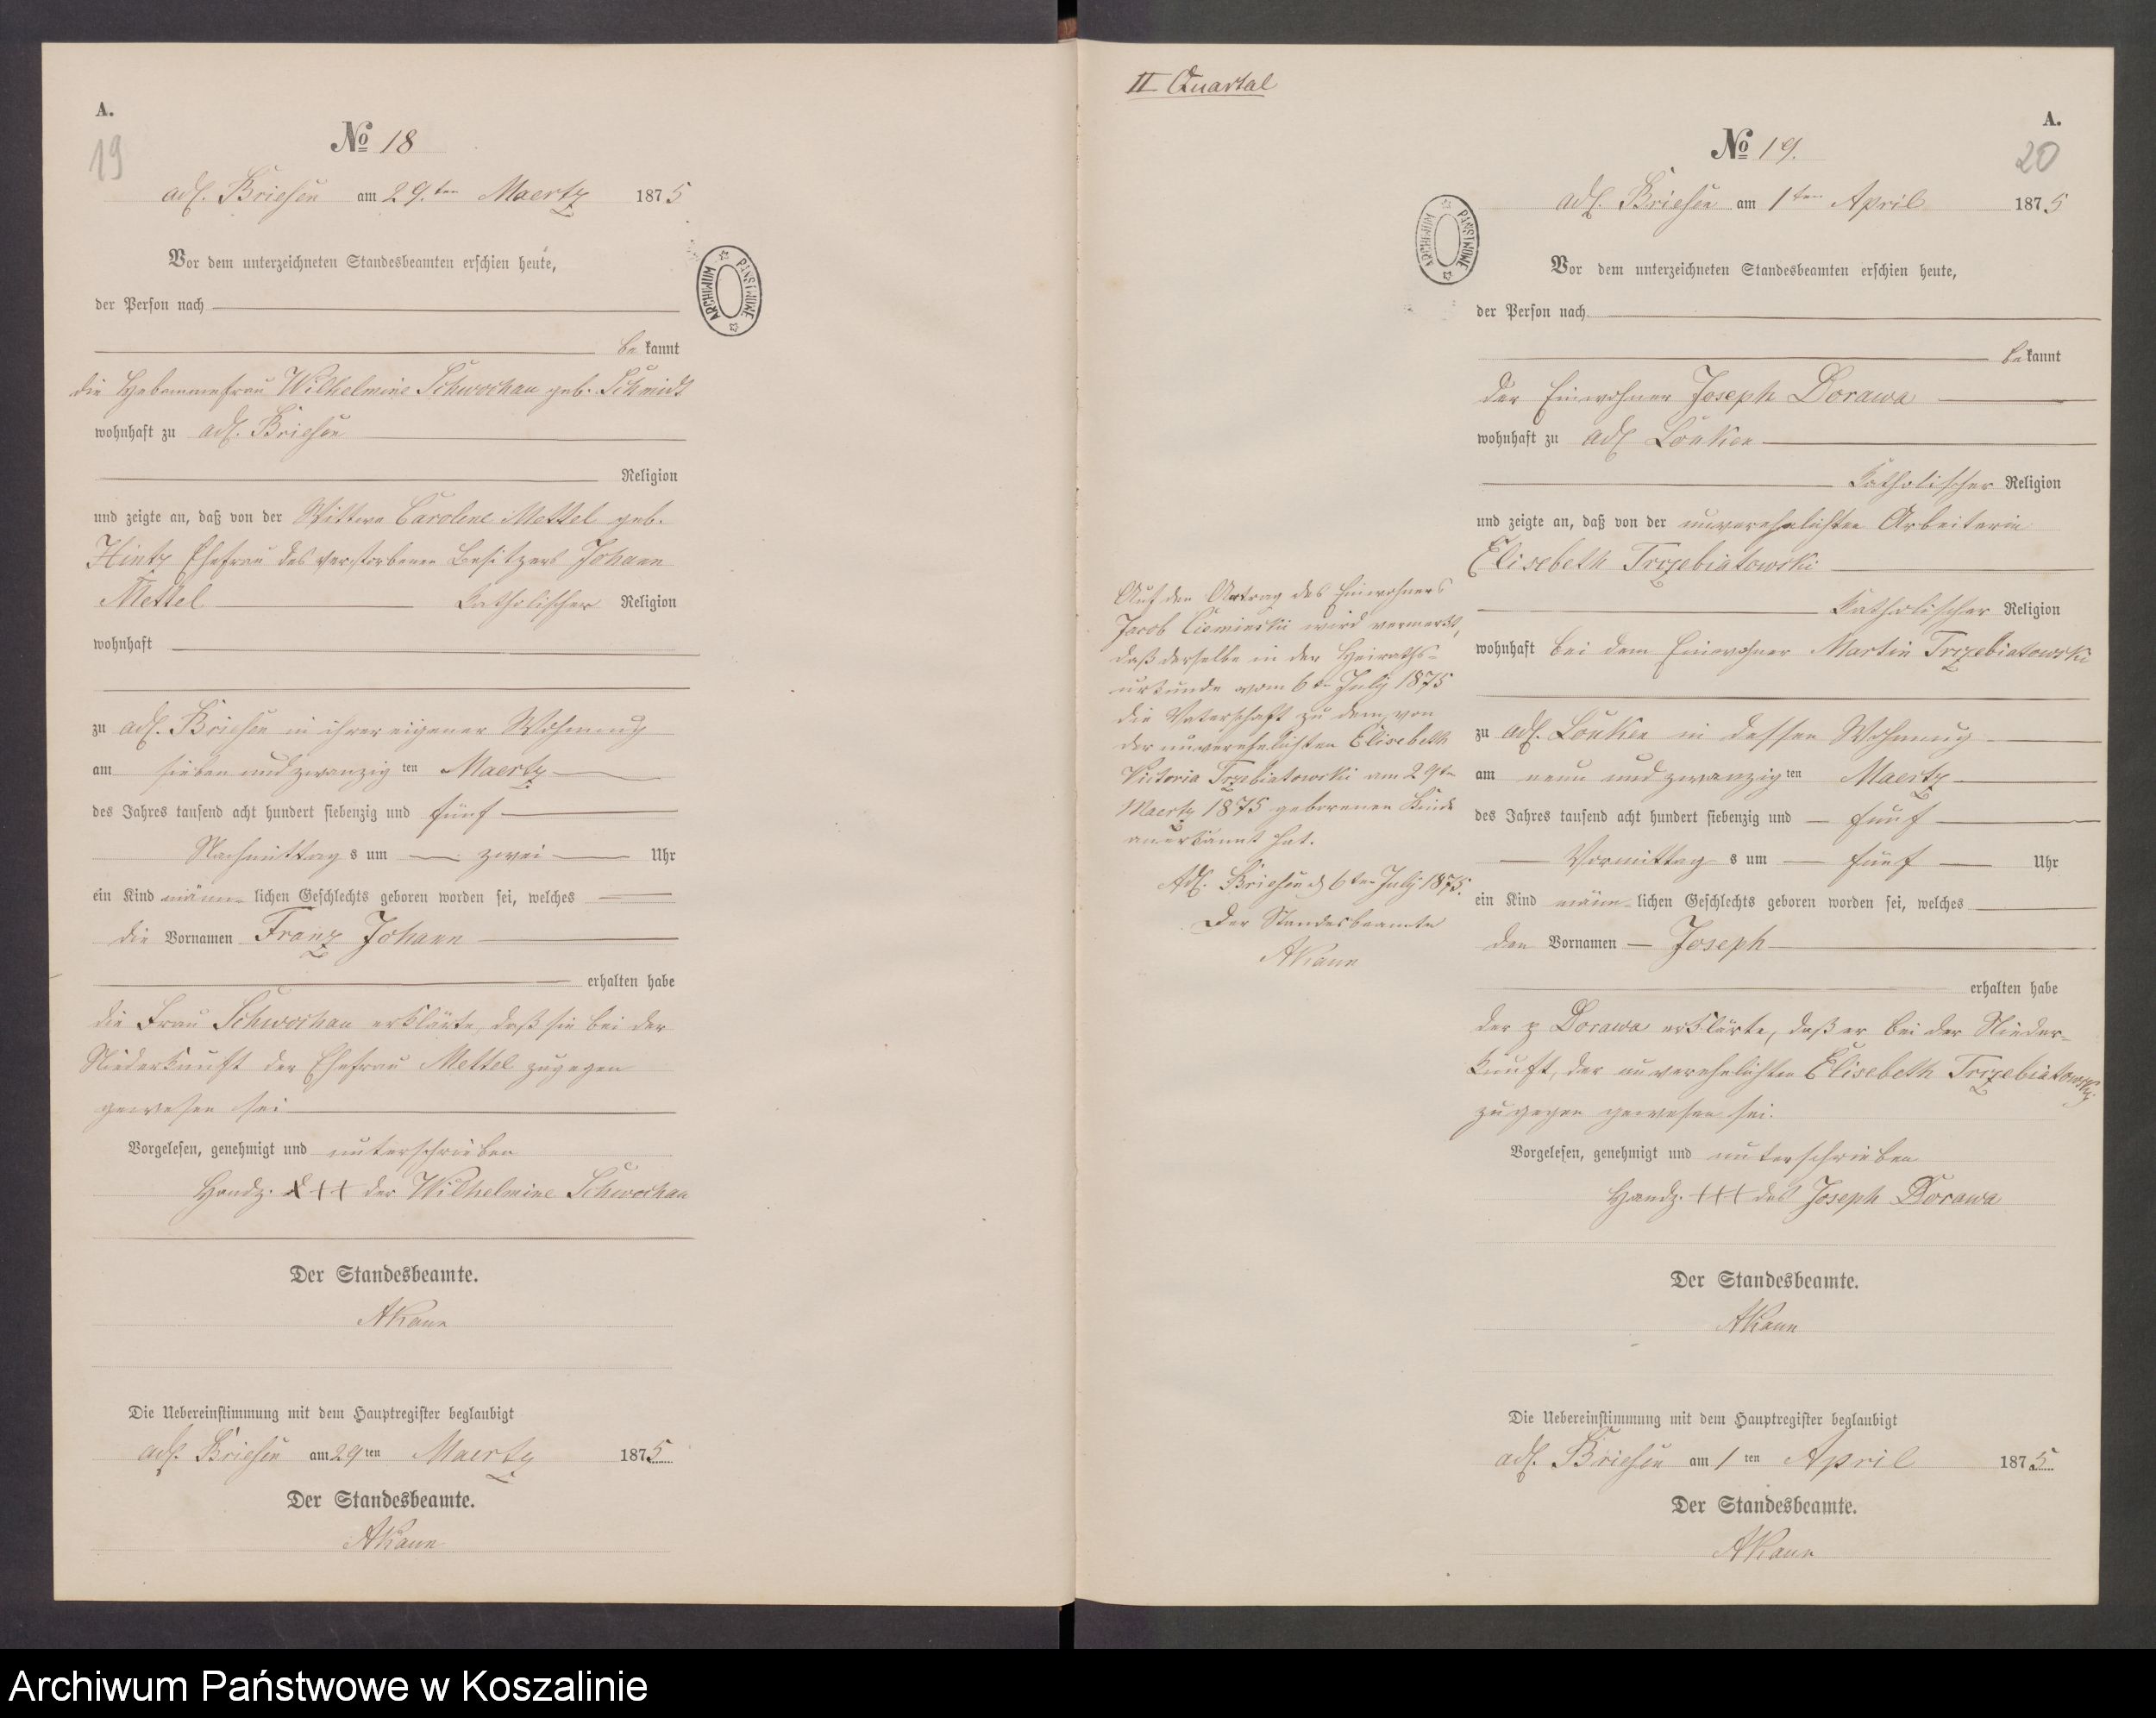 A.
19
No 18
adl. Briesen am 29.ten Maertz 1875
Vor dem unterzeichneten Standesbeamten erschien heute,
der Person nach
bekannt
die Hebammefrau Wilhelmine Schwochau geb. Schmidt
wohnhaft zu adl. Briesen
Religion
und zeigte an, daß von der Wittwe Carolene Mettel geb.
Hintz Ehefrau des verstorbenen Besitzers Johann
Mettel katholischer Religion
wohnhaft
zu adl. Briesen in ihrer eigener Wohnung
am sieben und zwanzig ten Maertz
des Jahres tausend acht hundert siebenzig und fünf
Nachmittag s um zwei Uhr
ein Kind männ- lichen Geschlechts geboren worden sei, welches
die Vornamen Franz Johann
erhalten habe
die Frau Schwochau erklärte, daß sie bei der
Niederkunft der Ehefrau Mettel zugegen
gewesen sei
Vorgelesen, genehmigt und unterschrieben
Handz. +++ der Wilhelmine Schwochau
Der Standesbeamte.
AKann
Die Uebereinstimmung mit dem Hauptregister beglaubigt
adl. Briesen am 29 ten Maertz 1875
Der Standesbeamte.
AKann
ARCHIWUM PAŃSTWOWE
II Quartal
A.
20
No 19.
adl. Briesen am 1ten April 1875
ARCHIWUM PAŃSTWOWE
Vor dem unterzeichneten Standesbeamten erschien heute,
der Person nach
bekannt
der Einwohner Joseph Dorawa
wohnhaft zu adl Lonken
Katholischer Religion
und zeigte an, daß von der unverehelichten Arbeiterin
Elisebeth Trzebiatowski
Katholischer Religion
wohnhaft bei dem Einwohner Martin Trzebiatowski
zu adl. Lonken in dessen Wohnung
am neun und zwanzig ten Maertz
des Jahres tausend acht hundert siebenzig und fünf
Vormittag s um fünf Uhr
ein Kind männ- lichen Geschlechts geboren worden sei, welches
den Vornamen Joseph
erhalten habe
der p Dorawa erklärte, daß er bei der Nieder-
kunft, der unverehelichten Elisebeth Trzebiatowski
zugegen gewesen sei.
Vorgelesen, genehmigt und unterschrieben
Handz. +++ des Joseph Dorawa
Der Standesbeamte.
AKann
Die Uebereinstimmung mit dem Hauptregister beglaubigt
adl. Briesen am 1 ten April 1875
Der Standesbeamte.
AKann
Auf den Antrag des Einwohners
Jacob Cieminski wird vermerkt,
daß derselbe in der Heiraths-
urkunde vom 6ten July 1875
die Vaterschaft zu dem, von
der unverehelichten Elisebeth
Victoria Trzebiatowski am 29ten
Maertz 1875 geborenen Kinde
anerkannt hat.
Adl. Briesen d 6ten July 1875.
Der Standesbeamte
AKann
Archiwum Państwowe w Koszalinie